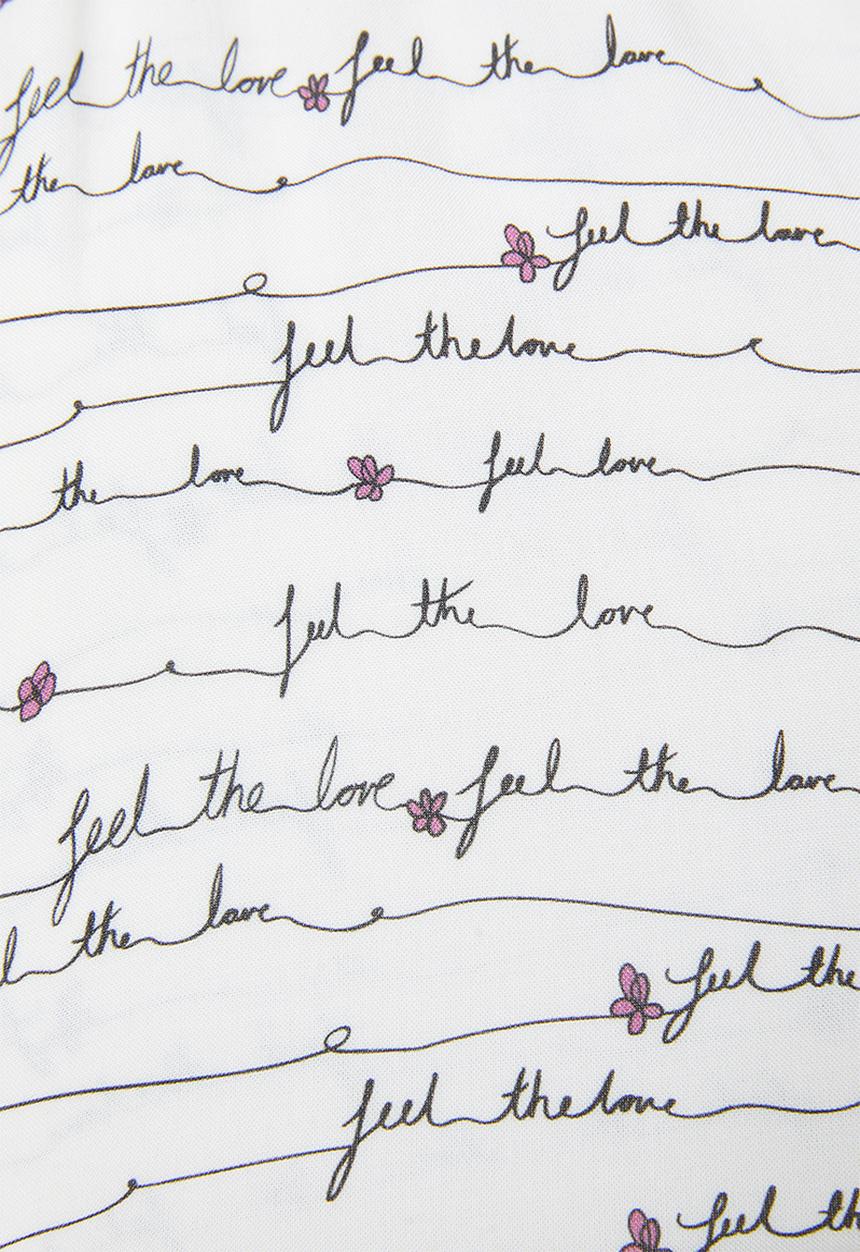 feel the love feel the love
the love
feel the love
feel the love
the love feel love
feel the love
feel the love feel the love
l the love
feel the
feel the love
feel th